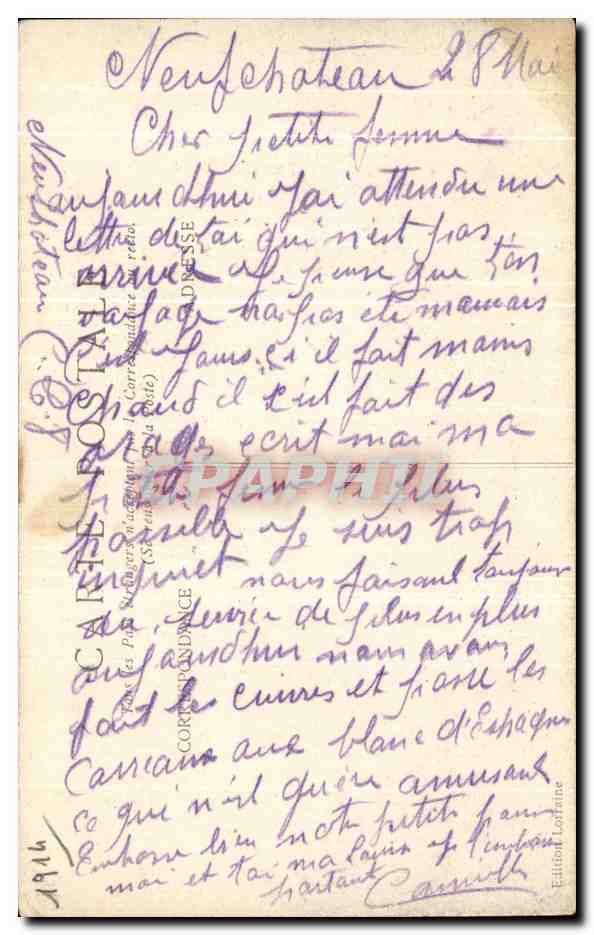 Neufchateau 28 Mai
Cher petite femme
aujourd'hui j'ai attendu une
lettre de toi qui n'est pas
arrivée je pense que ton
voyage na pas été mauvais
ces jours ci il fait moins
chaud il fait des
orages ecrit moi ma
petite femme le plus
possible je suis trop
inquiet nous faisons toujours
du service de plus en plus
aujourdhui nous avons
fait les cuivres et passé les
carreaux aux blanc d'Espagne
ce qui n'est guère amusant
Embrasse bien notre petite pour
moi et toi ma je t'embrasse
partout Camille
Neufchateau
1914
CARTE POSTALE
Tous les Pays Étrangers n'acceptent pas la Correspondance au recto.
(Se renseigner à la Poste)
CORRESPONDANCE
ADRESSE
Edition Lorraine
CPAPHIL